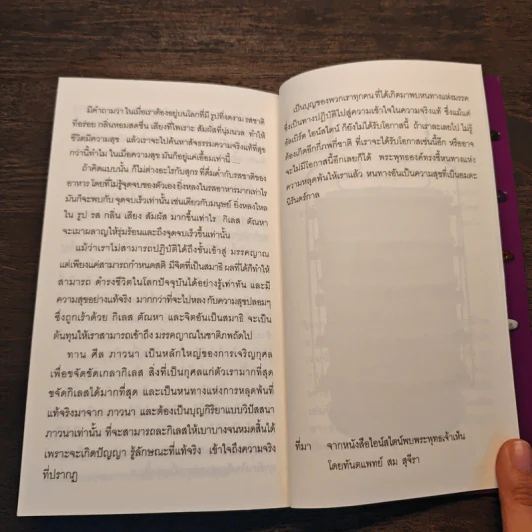 มีคำถามว่า ในเมื่อเราต้องอยู่บนโลกที่มี รูปที่งดงาม รสชาติ
ที่อร่อย กลิ่นหอมสดชื่น เสียงที่ไพเราะ สัมผัสที่นุ่มนวล ทำให้
ชีวิตมีความสุข แล้วเราจะไปค้นหาสัจธรรมความจริงแท้ที่สุข
กว่านี้ทำไม ในเมื่อความสุข มันก็อยู่แค่เอื้อมเท่านี้
ถ้าคิดแบบนั้น ก็ไม่ต่างอะไรกับสุกร ที่ดื่มด่ำกับรสชาติของ
อาหาร โดยที่ไม่รู้จุดจบของตัวเอง ยิ่งหลงในรสอาหารมากเท่าไร
มันก็จะพบกับ จุดจบเร็วเท่านั้น เช่นเดียวกับมนุษย์ ยิ่งหลงใหล
ใน รูป รส กลิ่น เสียง สัมผัส มากขึ้นเท่าไร กิเลส ตัณหา
จะเผาผลาญให้รุ่มร้อนและถึงจุดจบเร็วขึ้นเท่านั้น
แม้ว่าเราไม่สามารถปฏิบัติได้ถึงขั้นเข้าสู่ มรรคญาณ
แต่เพียงแค่สามารถกำหนดสติ มีจิตที่เป็นสมาธิ ผลที่ได้ก็ทำให้
สามารถ ดำรงชีวิตในโลกปัจจุบันได้อย่างรู้เท่าทัน และมี
ความสุขอย่างแท้จริง มากกว่าที่จะไปหลง กับความสุขปลอมๆ
ซึ่งถูกเร้าด้วย กิเลส ตัณหา และจิตอันเป็นสมาธิ จะเป็น
ต้นทุนให้เราสามารถเข้าถึง มรรคญาณในชาติภพถัดไป
ทาน ศีล ภาวนา เป็นหลักใหญ่ของการเจริญกุศล
เพื่อขจัดขัดเกลากิเลส สิ่งที่เป็นกุศลแก่ตัวเรามากที่สุด
ขจัดกิเลสได้มากที่สุด และเป็นหนทางแห่งการหลุดพ้นที่
แท้จริงมาจาก ภาวนา และต้องเป็นบุญกิริยาแบบวิปัสสนา
ภาวนาเท่านั้น ที่จะสามารถละกิเลสให้เบาบางจนหมดสิ้นได้
เพราะจะเกิดปัญญา รู้ลักษณะที่แท้จริง เข้าใจถึงความจริง
ที่ปรากฏ
เป็นบุญของพวกเราทุกคน ที่ได้เกิดมาพบหนทางแห่งมรรค
ซึ่งเป็นทางปฏิบัติไปสู่ความเข้าใจในความจริงแท้ ซึ่งแม้แต่
อัลเบิร์ต ไอน์สไตน์ ก็ยังไม่ได้รับโอกาสนี้ ถ้าเราละเลยไป ไม่รู้
ต้องเกิดอีกกี่ภพกี่ชาติ ที่เราจะได้รับโอกาสเช่นนี้อีก หรืออาจ
จะไม่มีโอกาสนี้อีกเลยก็ได้ พระพุทธองค์ทรงชี้หนทางแห่ง
ความหลุดพ้นให้เราแล้ว หนทางอันเป็นความสุขที่เป็นอมตะ
นิรันดร์กาล
ที่มา จากหนังสือไอน์สไตน์พบพระพุทธเจ้าเห็น
โดยทันตแพทย์ สม สุจีรา